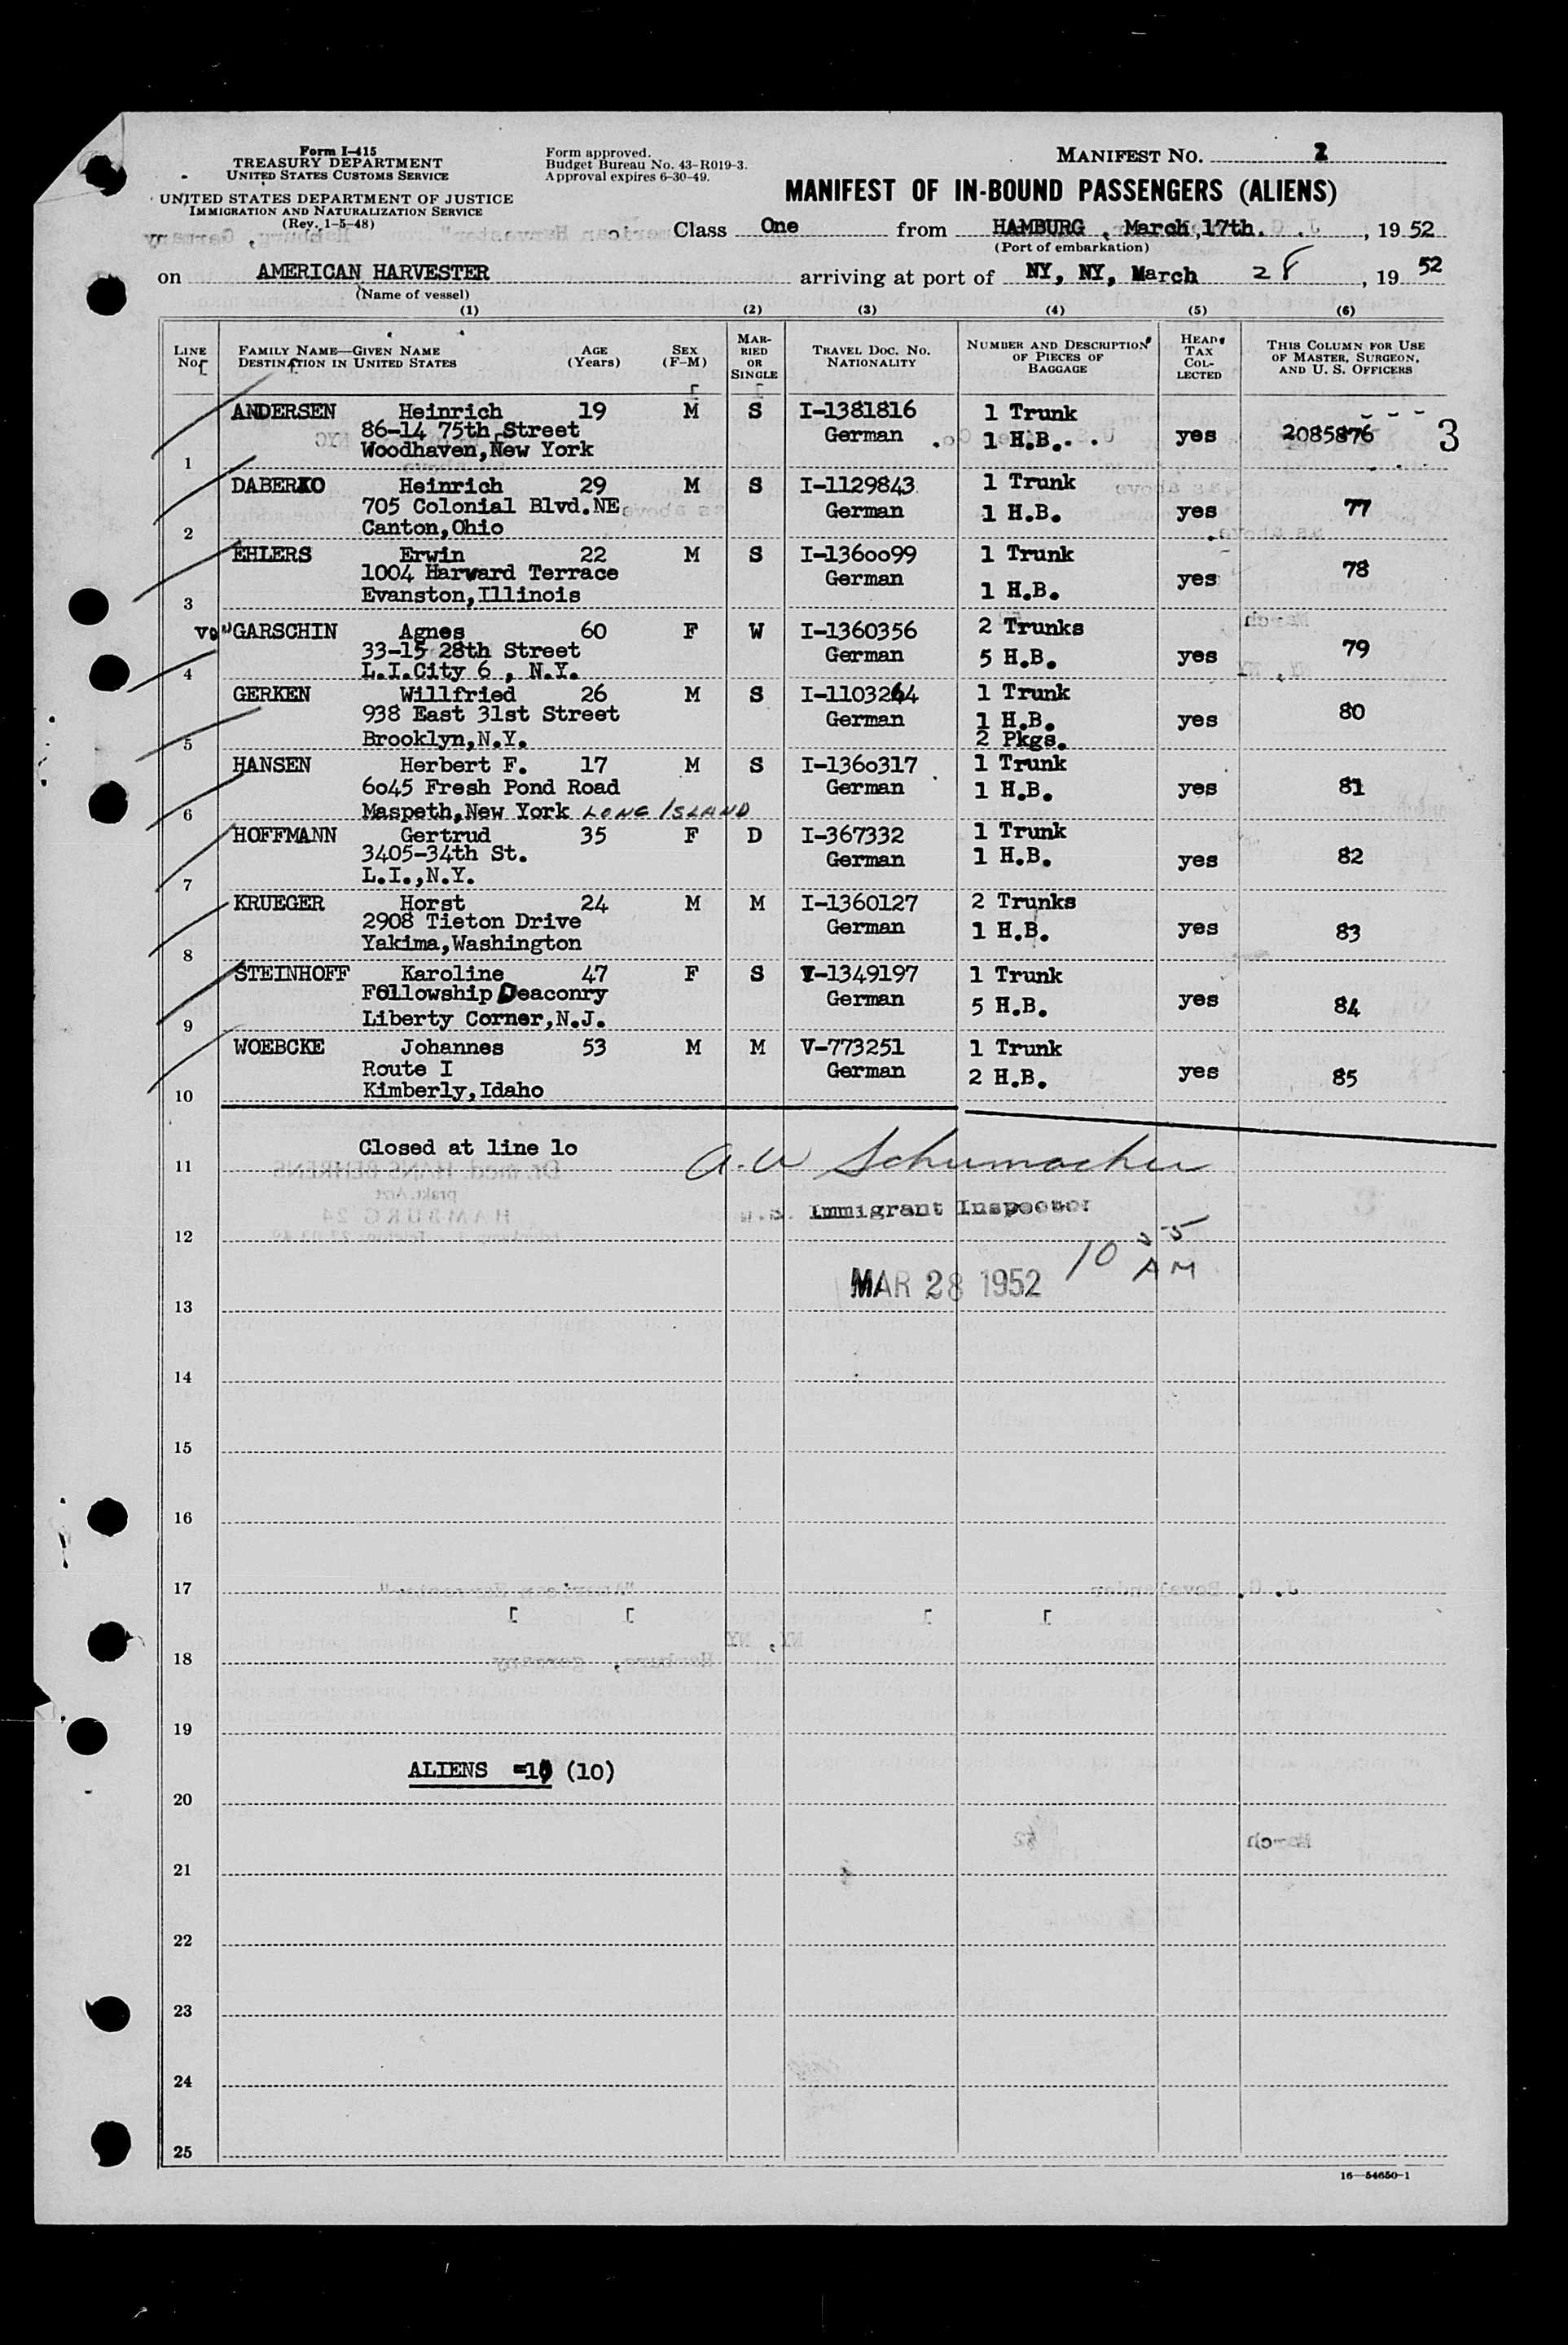 Form I-415
TREASURY DEPARTMENT
UNITED STATES CUSTOMS SERVICE
UNITED STATES DEPARTMENT OF JUSTICE
IMMIGRATION AND NATURALIZATION SERVICE
(Rev. 1-5-48)
Form approved.
Budget Bureau No. 43-R019-3.
Approval expires 6-30-49.
MANIFEST NO. 2
MANIFEST OF IN-BOUND PASSENGERS (ALIENS)
Class One from HAMBURG, March, 17th. , 19 52
(Port of embarkation)
on AMERICAN HARVESTER arriving at port of NY, NY, March 28, 19 52
(Name of vessel)
(1) (2) (3) (4) (5) (6)
LINE NO. FAMILY NAME—GIVEN NAME DESTINATION IN UNITED STATES AGE (Years) SEX (F-M) MARRIED OR SINGLE TRAVEL DOC. NO. NATIONALITY NUMBER AND DESCRIPTION OF PIECES OF BAGGAGE HEAD TAX COLLECTED THIS COLUMN FOR USE OF MASTER, SURGEON, AND U. S. OFFICERS
ANDERSEN Heinrich 19 M S I-1381816 1 Trunk
86-14 75th Street German 1 H.B. yes 2085876 3
1 Woodhaven,New York
DABERKO Heinrich 29 M S I-1129843 1 Trunk
705 Colonial Blvd.NE German 1 H.B. yes 77
2 Canton,Ohio
EHLERS Erwin 22 M S I-1360099 1 Trunk
1004 Harvard Terrace German yes 78
3 Evanston,Illinois 1 H.B.
von GARSCHIN Agnes 60 F W I-1360356 2 Trunks
33-15 28th Street German 5 H.B. yes 79
4 L.I.City 6 , N.Y.
GERKEN Willfried 26 M S I-1103264 1 Trunk
938 East 31st Street German 1 H.B. yes 80
5 Brooklyn,N.Y. 2 Pkgs.
HANSEN Herbert F. 17 M S I-1360317 1 Trunk
6045 Fresh Pond Road German 1 H.B. yes 81
6 Maspeth,New York LONG ISLAND
HOFFMANN Gertrud 35 F D I-367332 1 Trunk
3405-34th St. German 1 H.B. yes 82
7 L.I.,N.Y.
KRUEGER Horst 24 M M I-1360127 2 Trunks
2908 Tieton Drive German 1 H.B. yes 83
8 Yakima,Washington
STEINHOFF Karoline 47 F S V-1349197 1 Trunk
Fellowship Deaconry German 5 H.B. yes 84
9 Liberty Corner,N.J.
WOEBCKE Johannes 53 M M V-773251 1 Trunk
Route I German 2 H.B. yes 85
10 Kimberly,Idaho
Closed at line 10
11 A.W Schumacher
Immigrant Inspector
12
10 55 AM
MAR 28 1952
13
14
15
16
17
18
19
ALIENS =10 (10)
20
21
22
23
24
25
16—54650-1